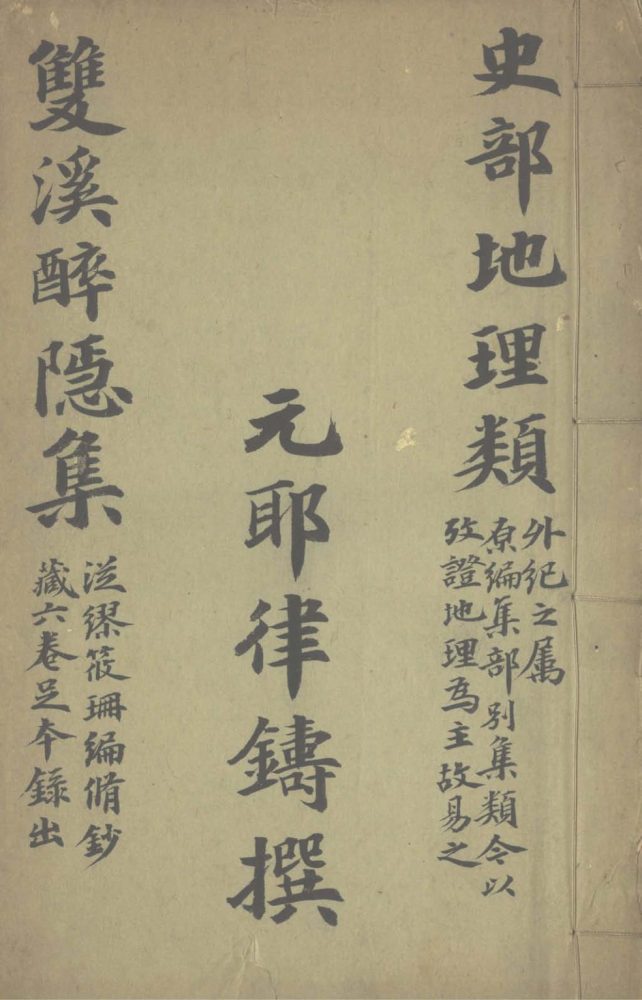 史部地理類
外紀之屬
原編集部別集類今以
攷證地理為主故易之
元耶律鑄撰
雙溪醉隱集
從繆筱珊編脩鈔
藏六卷足本錄出